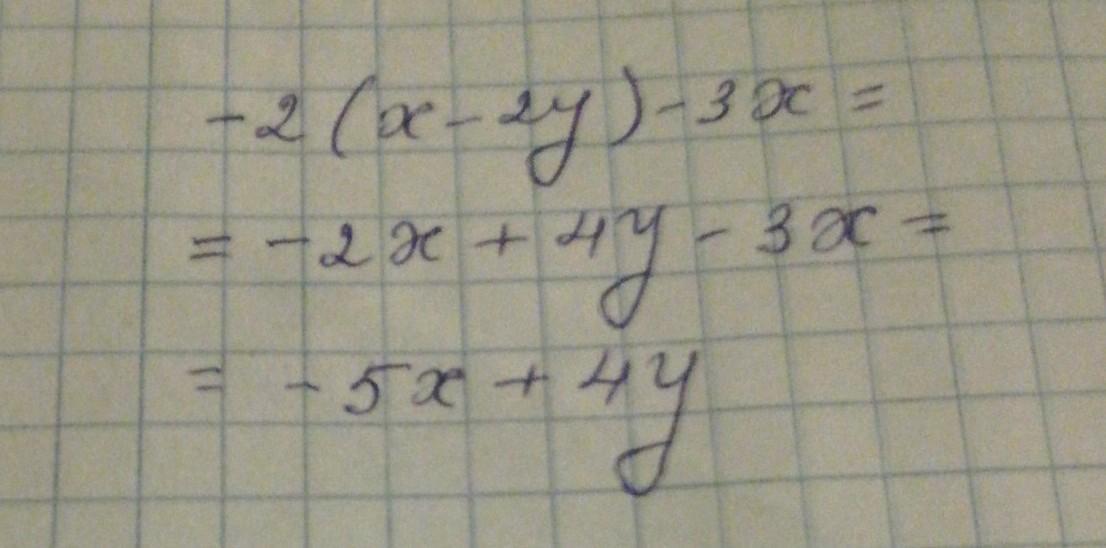 -2(x-2y)-3x=
=-2x+4y-3x=
=-5x+4y